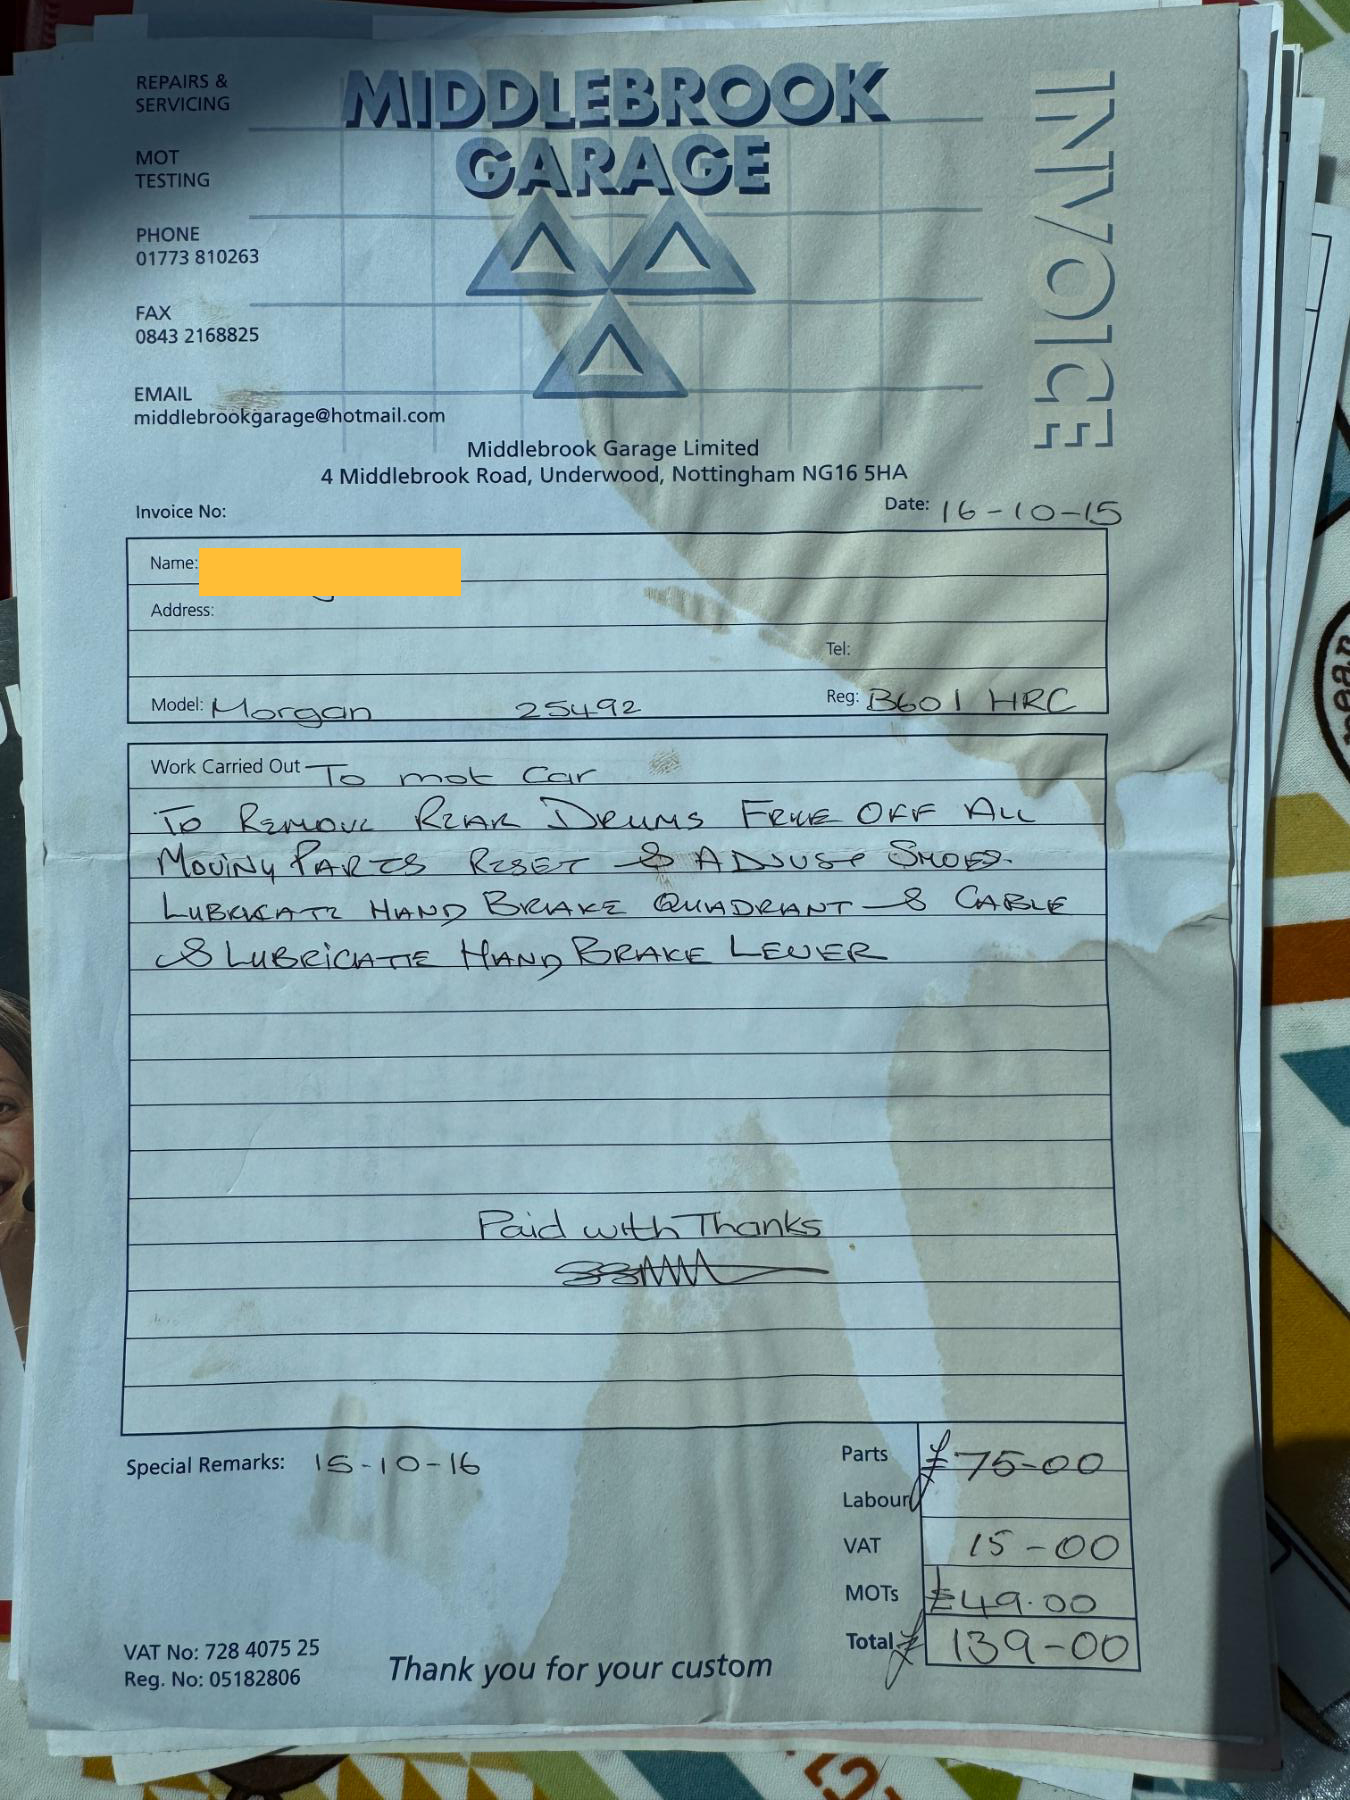 REPAIRS &
SERVICING
MOT
TESTING
PHONE
01773 810263
FAX
0843 2168825
EMAIL
middlebrookgarage@hotmail.com
MIDDLEBROOK
GARAGE
INVOICE
Middlebrook Garage Limited
4 Middlebrook Road, Underwood, Nottingham NG16 5HA
Invoice No:
Date: 16-10-15
Name:
Address:
Tel:
Model: Morgan 25492 Reg: B601 HRC
Work Carried Out To mot Car
TO REMOVE REAR DRUMS FREE OFF ALL
MOVING PARTS RESET & ADJUST SHOES.
LUBRICATE HAND BRAKE QUADRANT & CABLE
& LUBRICATE HAND BRAKE LEVER
Paid with Thanks
Special Remarks: 15-10-16
Parts £75-00
Labour
VAT 15-00
MOTs £49.00
Total £ 139-00
VAT No: 728 4075 25
Reg. No: 05182806
Thank you for your custom